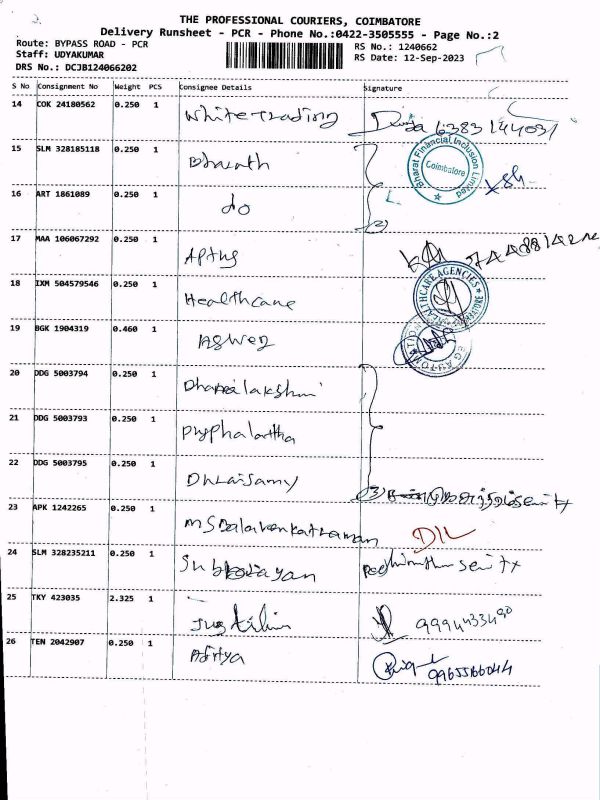 2.
THE PROFESSIONAL COURIERS, COIMBATORE
Delivery Runsheet - PCR - Phone No.:0422-3505555 - Page No.:2
Route: BYPASS ROAD - PCR
Staff: UDYAKUMAR
DRS No.: DCJB124066202
RS No.: 1240662
RS Date: 12-Sep-2023
S No Consignment No Weight PCS Consignee Details Signature
14 COK 24180562 0.250 1 White Trading
15 SLM 328185118 0.250 1 Bharath
Bharat Financial Inclusion Limited
Coimbatore
16 ART 1861089 0.250 1 do
(2)
17 MAA 106067292 0.250 1 Aptus
18 IXM 504579546 0.250 1 Healthcare
HEALTHCARE AGENCIES
19 BGK 1904319 0.460 1
20 DDG 5003794 0.250 1 Dhanalakshmi
21 DDG 5003793 0.250 1
22 DDG 5003795 0.250 1 Duraisamy
(3)
23 APK 1242265 0.250 1 MS Balavenkatraman
24 SLM 328235211 0.250 1
25 TKY 423035 2.325 1
26 TEN 2042907 0.250 1 Aditya